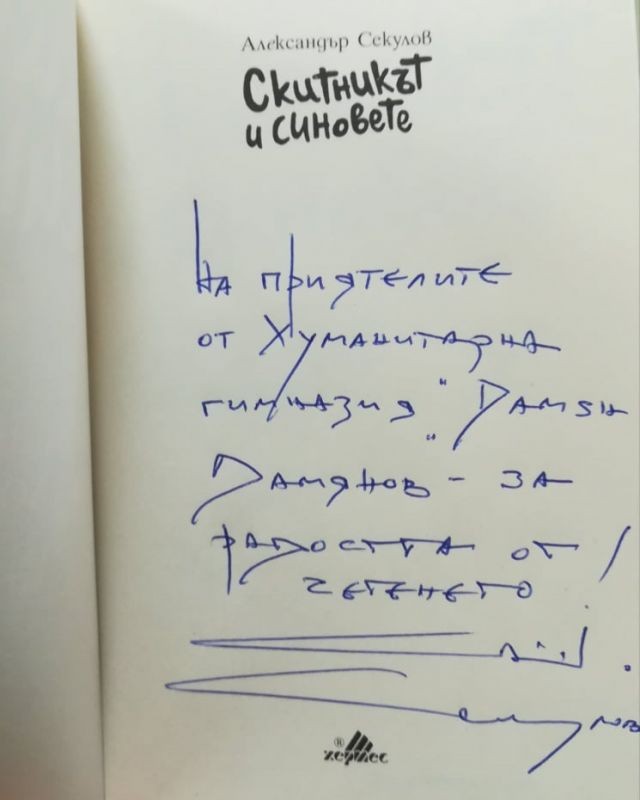 Александър Секулов
Скитникът
и синовете
На приятелите
от Хуманитарна
гимназия "Дамян
Дамянов" – за
радостта от
четенето!
® хермес